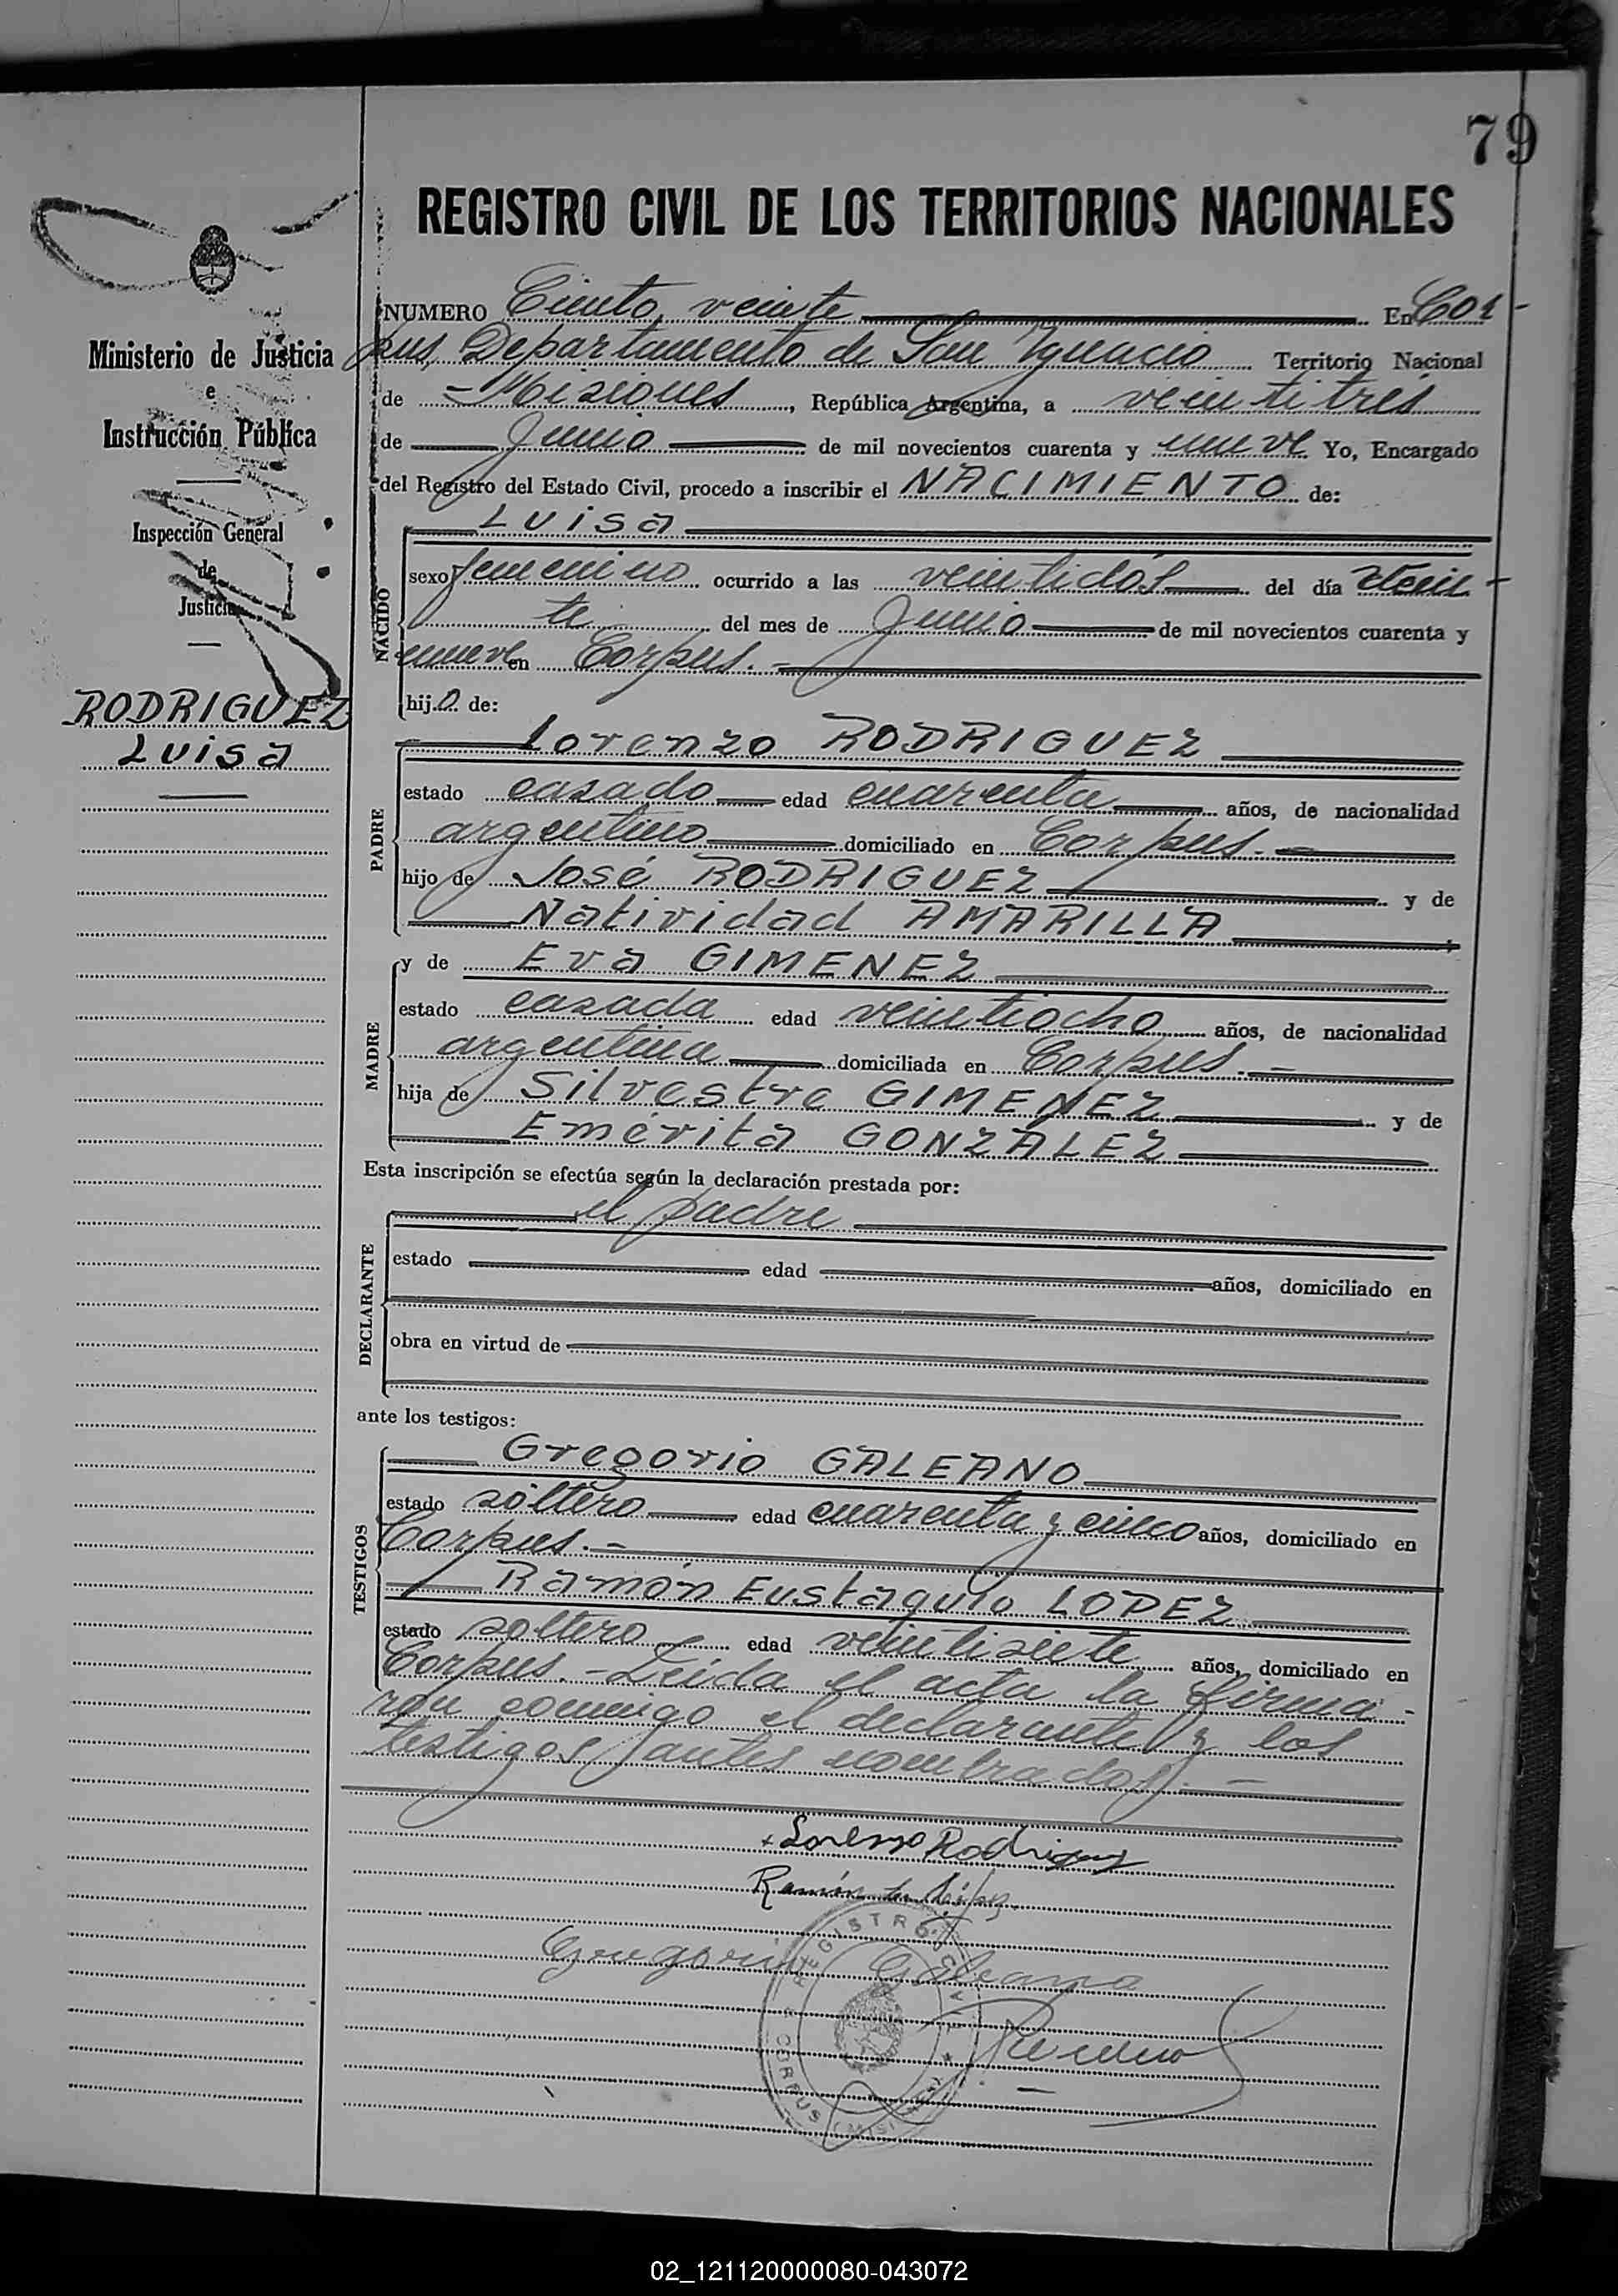 79
REGISTRO CIVIL DE LOS TERRITORIOS NACIONALES
Ministerio de Justicia
e
Instrucción Pública
Inspección General
de
Justicia
RODRIGUEZ
Luisa
NUMERO Ciento veinte En Cor-
pus, Departamento de San Ygnacio Territorio Nacional
de -Misiones, República Argentina, a veintitrés
de Junio de mil novecientos cuarenta y nueve Yo, Encargado
del Registro del Estado Civil, procedo a inscribir el NACIMIENTO de:
NACIDO
Luisa
sexo femenino ocurrido a las veintidós del día vein-
te del mes de Junio de mil novecientos cuarenta y
nueve en Corpus.-
hija de:
PADRE
Lorenzo RODRIGUEZ
estado casado edad cuarenta años, de nacionalidad
argentino domiciliado en Corpus.-
hijo de José RODRIGUEZ y de
Natividad AMARILLA
MADRE
y de Eva GIMENEZ
estado casada edad veintiocho años, de nacionalidad
argentina domiciliada en Corpus.-
hija de Silvestre GIMENEZ y de
Emérita GONZALEZ
Esta inscripción se efectúa según la declaración prestada por:
DECLARANTE
el padre
estado edad años, domiciliado en
obra en virtud de
ante los testigos:
TESTIGOS
Gregorio GALEANO
estado soltero edad cuarenta y cinco años, domiciliado en
Corpus.-
Ramón Eustaquio LOPEZ
estado soltero edad veintisiete años, domiciliado en
Corpus.-Leída el acta la firma-
ron conmigo el declarante y los
testigos antes nombrados.-
Lorenzo Rodriguez
Ramón López
Gregorio Galeano
REGISTRO CIVIL
CORPUS (MISIONES)
02_121120000080-043072